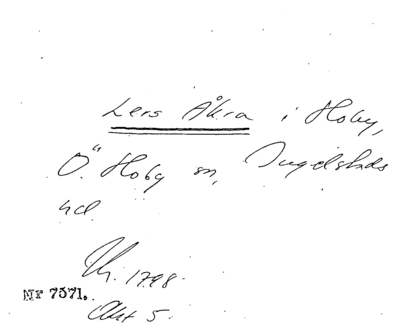 Lers Åkra i Hoby,
Ö. Hoby sn, Ingelstads
hd.
Kr. 1798.
Nr 7571.
Akt 5.